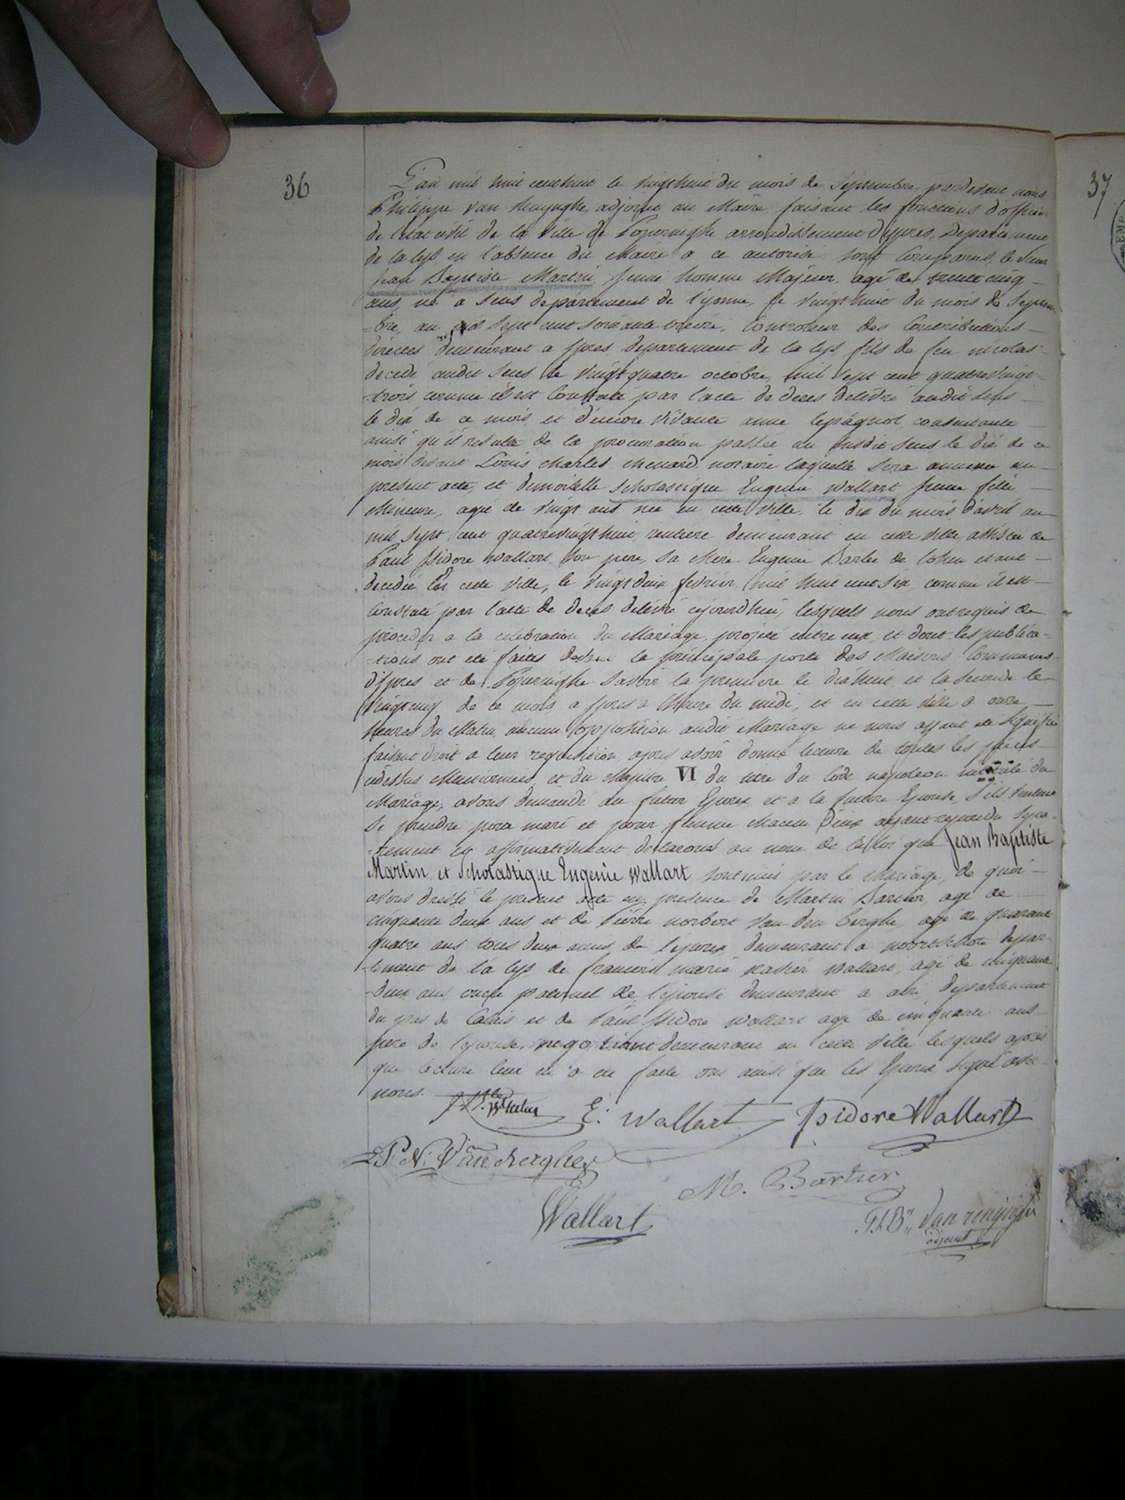 36
37
L'an mil huit cent huit le vingthuit du mois de Septembre pardevant nous
Philippe Van Renynghe, adjoint au Maire, faisant les fonctions d'officier
de l'état civil de la Ville de Poperinghe arrondissement d'ypres, Departement
de la lys en l'absence du Maire a ce autorisé sont comparus, le Sieur
Jean Baptiste Martin jeune homme Majeur, agé de trente cinq
ans, né a Sens departement de l'yonne, le vingthuit du mois de Septem-
-bre, an mil sept cent soixante treize, Controleur des Contributions
directes demeurant a ypres departement de la lys fils de feu nicolas
decedé audit Sens le vingtquatre octobre, mil sept cent quatrevingt
-trois comme il est constaté par l'acte de deces delivré audit Sens
le dix de ce mois et d'encore vivante anne lespagnol consentante
ainsi qu'il resulte de la procuration passée au susdit Sens le dix de ce
mois devant Louis Charles chenard notaire laquelle sera annexée au
présent acte, et demoiselle Scholastique Eugenie Wallart jeune fille
Mineure, agée de vingt ans née en cette ville, le dix du mois d'avril an
mil sept cent quatrevingthuit rentiere demeurant en cette ville assistée de
Paul Isidore Wallart son pere, sa Mere Eugenie de étant
decedée en cette ville, le vingt deux fevrier mil huit cent six comme il est
Constaté par l'acte de deces delivré cejourd'hui, lesquels nous ont requis de
proceder a la celebration du Mariage projeté entre eux et dont les publica-
-tions ont été faites devant la principale porte des Maisons Communes
d'ypres et de Poperinghe savoir la premiere le dixhuit et la seconde le
vingtcinq de ce mois a ypres a l'heure du midi, et en cette ville a onze
heures du Matin, aucune opposition audit Mariage ne nous ayant été signifiée
faisant droit a leur requisition apres avoir donné lecture de toutes les pieces
cidessus Mentionnées et du chapitre VI du titre du Code napoleon intitulé du
Mariage, avons demandé au futur Epoux et a la future Epouse, s'ils veulent
se prendre pour mari et pour femme chacun d'eux ayant repondu separe-
-ment et affirmativement declarons au nom de la loi que Jean Baptiste
Martin et Scholastique Eugenie Wallart sont unis par le Mariage, de quoi
avons dressé le present acte en presence de Martin Bartier agé de
cinquante deux ans et de Pierre norbert Van den Berghe agé de quarante
quatre ans tous deux amis de l'epoux demeurant a departe-
-ment de la lys de francois marie xavier Wallart, agé de cinquante
deux ans oncle paternel de l'epouse demeurant a departement
du pas de Calais et de Paul Isidore Wallart agé de cinquante ans
pere de l'epouse, negotiant demeurant en cette ville lesquels apres
que lecture leur en a été faite ont ainsi que les Epoux signé avec
nous.
Martin E: Wallart Isidore Wallart
P. N. Vandenberghe
M. Bartier
Wallart
Van renynghe
adjoint